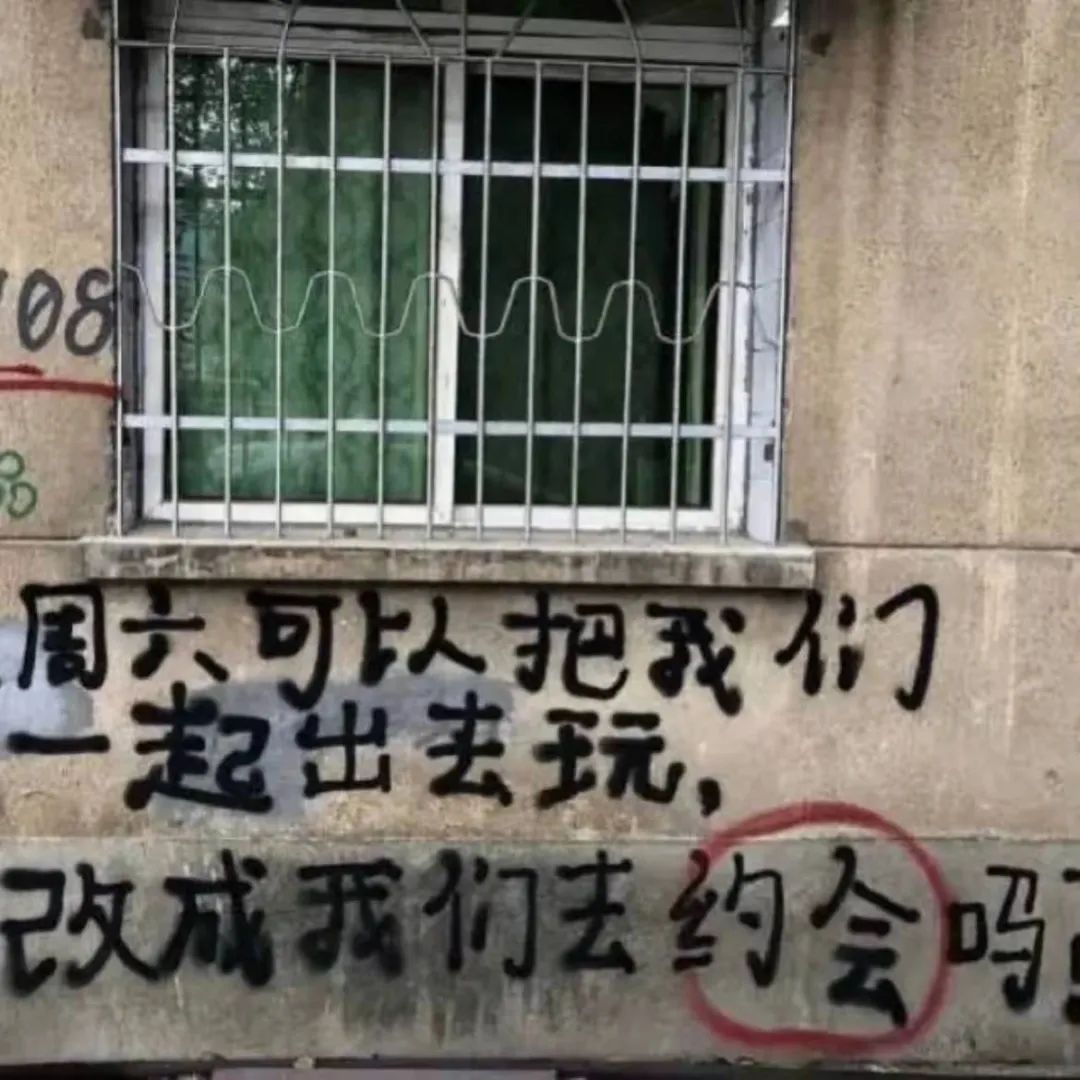 108
周六可以把我们
一起出去玩，
改成我们去约会吗？